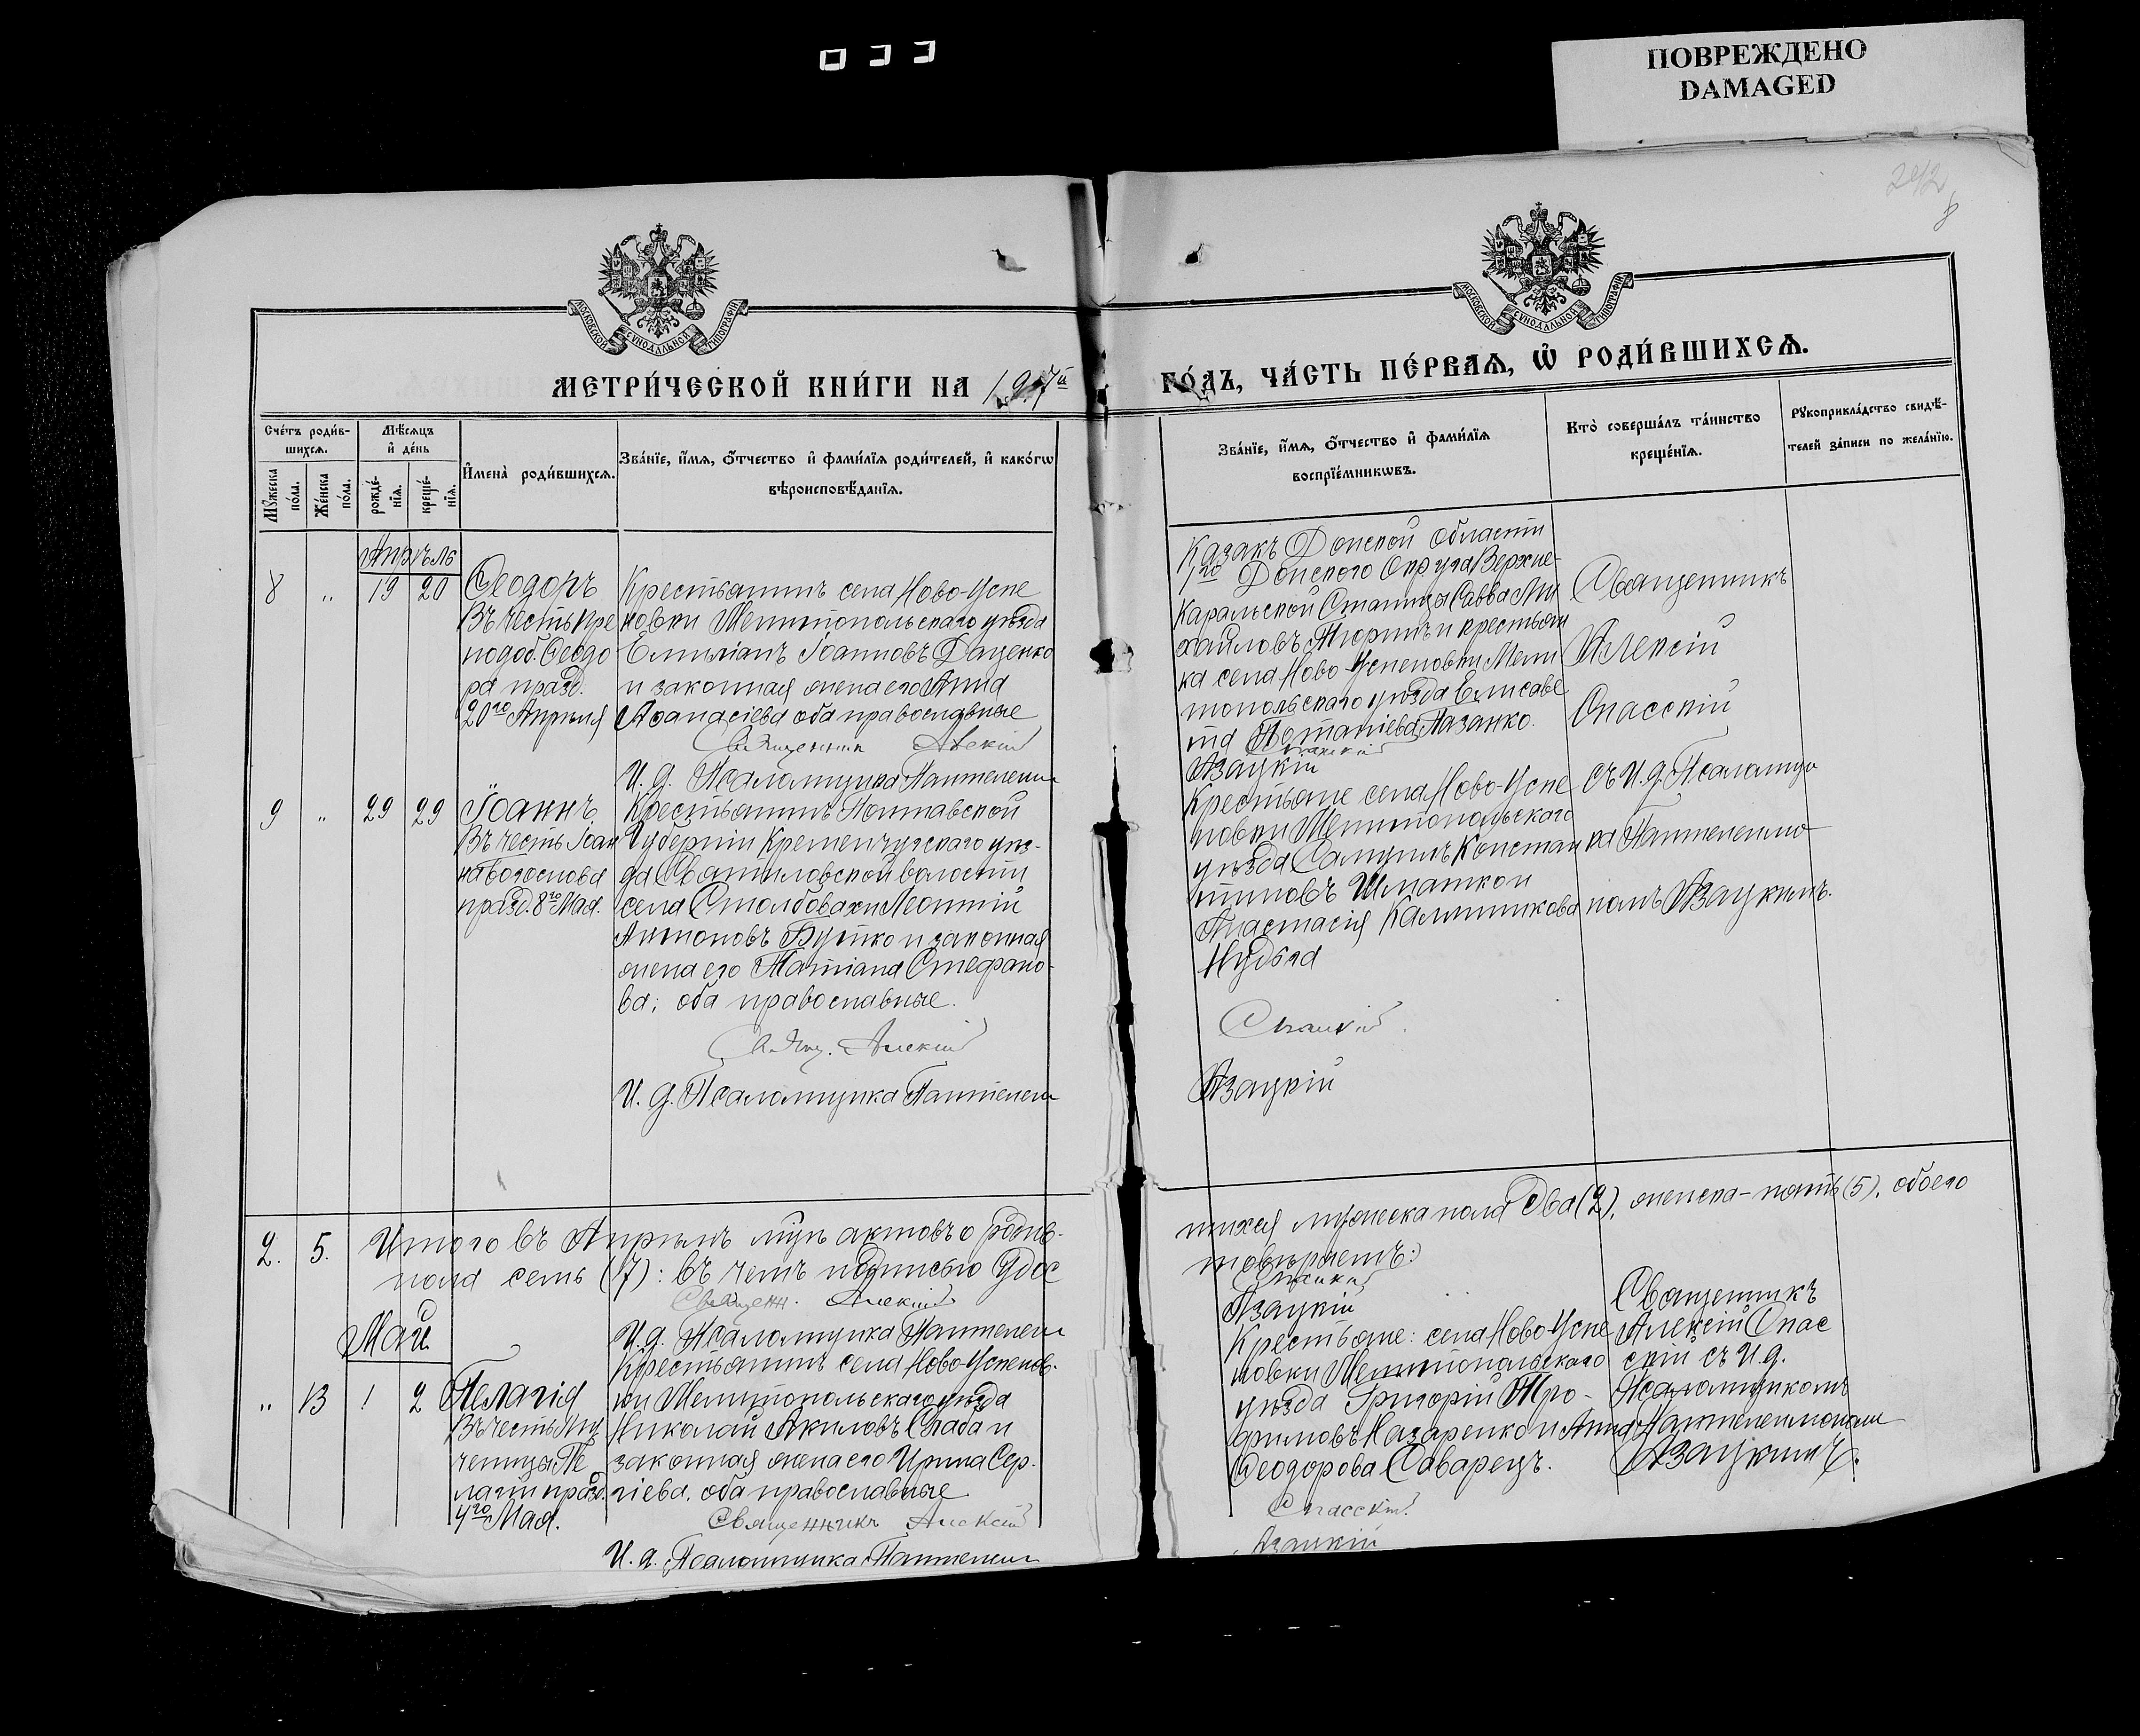 ПОВРЕЖДЕНО
DAMAGED
242
8
МОСКОВСКОЙ СѴНОДАЛЬНОЙ ТИПОГРАФІИ
МОСКОВСКОЙ СѴНОДАЛЬНОЙ ТИПОГРАФІИ
МЕТРИ́ЧЕСКОЙ КНИ́ГИ НА 1917й ГО́ДЪ, ЧА́СТЬ ПЕ́РВАЯ, Ѿ РОДИ́ВШИХСЯ.
Сче́тъ роди́в-
шихся.
Мѣ́сяцъ
и҆ де́нь
Му́жеска
по́ла.
Же́нска
по́ла.
рожде́-
нїя.
креще́-
нїя.
И҆мена̀ роди́вшихся.
Зва́нїе, и҆́мя, ѻ҆́тчество и҆ фами́лїя роди́телей, и҆ како́гѡ
вѣроисповѣ́данїя.
Зва́нїе, и҆́мя, ѻ҆́тчество и҆ фами́лїя
воспрїе́мникѡвъ.
Кто̀ соверша́лъ та́инство
креще́нїя.
Рукоприкла́дство свидѣ́-
телей за́писи по жела́нїю.
Апрѣль
8 " 19 20
Ѳеодоръ
Въ честь пре
подоб. Ѳеодо
ра празд.
20го Апрѣля
Крестьянинъ села Ново-Успе
новки Мелитопольскаго уѣзда
Емиліанъ Іоанновъ Даценко
и законная жена его Анна
Аѳанасіева оба православные
Священникъ Алексій
И. д. Псаломщика Пантелеим
Казакъ Донской Области
1го Донского Округа Верхне-
Каральской Станицы Савва Ми
хайловъ Тюринъ и крестьян
ка села Ново-Успеновки Мели
топольскаго уѣзда Елисаве
та Потапіева Лазанко.
Спасскій
Азацкій
Священникъ
Алексій
Спасскій
съ И. д. Псаломщи
ка Пантелеимо
номъ Азацкимъ.
9 " 29 29
Іоаннъ
Въ честь Іоан
на богослова
празд. 8го Мая.
Крестьянинъ Полтавской
Губерніи Кременчугскаго уѣз-
да Святиловской волости
села Столбовахи Леонтій
Антоновъ Бутко и законная
жена его Татіана Стефано-
ва; оба православные.
Свящ. Алексій
И. д. Псаломщика Пантелеим
Крестьяне села Ново-Успе
новки Мелитопольскаго
уѣзда Самуилъ Констан
тиновъ Шматко и
Анастасія Каллиникова
Нудьга
Спасскій.
Азацкій
2. 5. Итого въ Апрѣлѣ мцѣ актовъ о родив-
шихся мужеска пола два (2), женска - пять (5), обоего
пола семь (7): въ чемъ подписью удос
товѣряемъ:
Священн. Алексій
Спасскій
И. д. Псаломщика Пантелеим
Азацкій
Май
" 13 1 2
Пелагія
Въ честь Му
ченицы Пе
лагіи празд.
4го Мая.
Крестьянинъ села Ново-Успенов-
ки Мелитопольскаго уѣзда
Николай Акиловъ Слаба и
законная жена его Ирина Сер-
гіева, оба православные
Священникъ Алексій
И. д. Псаломщика Пантелеим
Крестьяне: села Ново-Успе
новки Мелитопольскаго
уѣзда Григорій Тро-
фимовъ Назаренко и Анна
Ѳеодорова Саварецъ.
Спасскій
Азацкій
Священникъ
Алексій Спас
скій съ И. д.
Псаломщикомъ
Пантелеимоном
Азацкимъ.